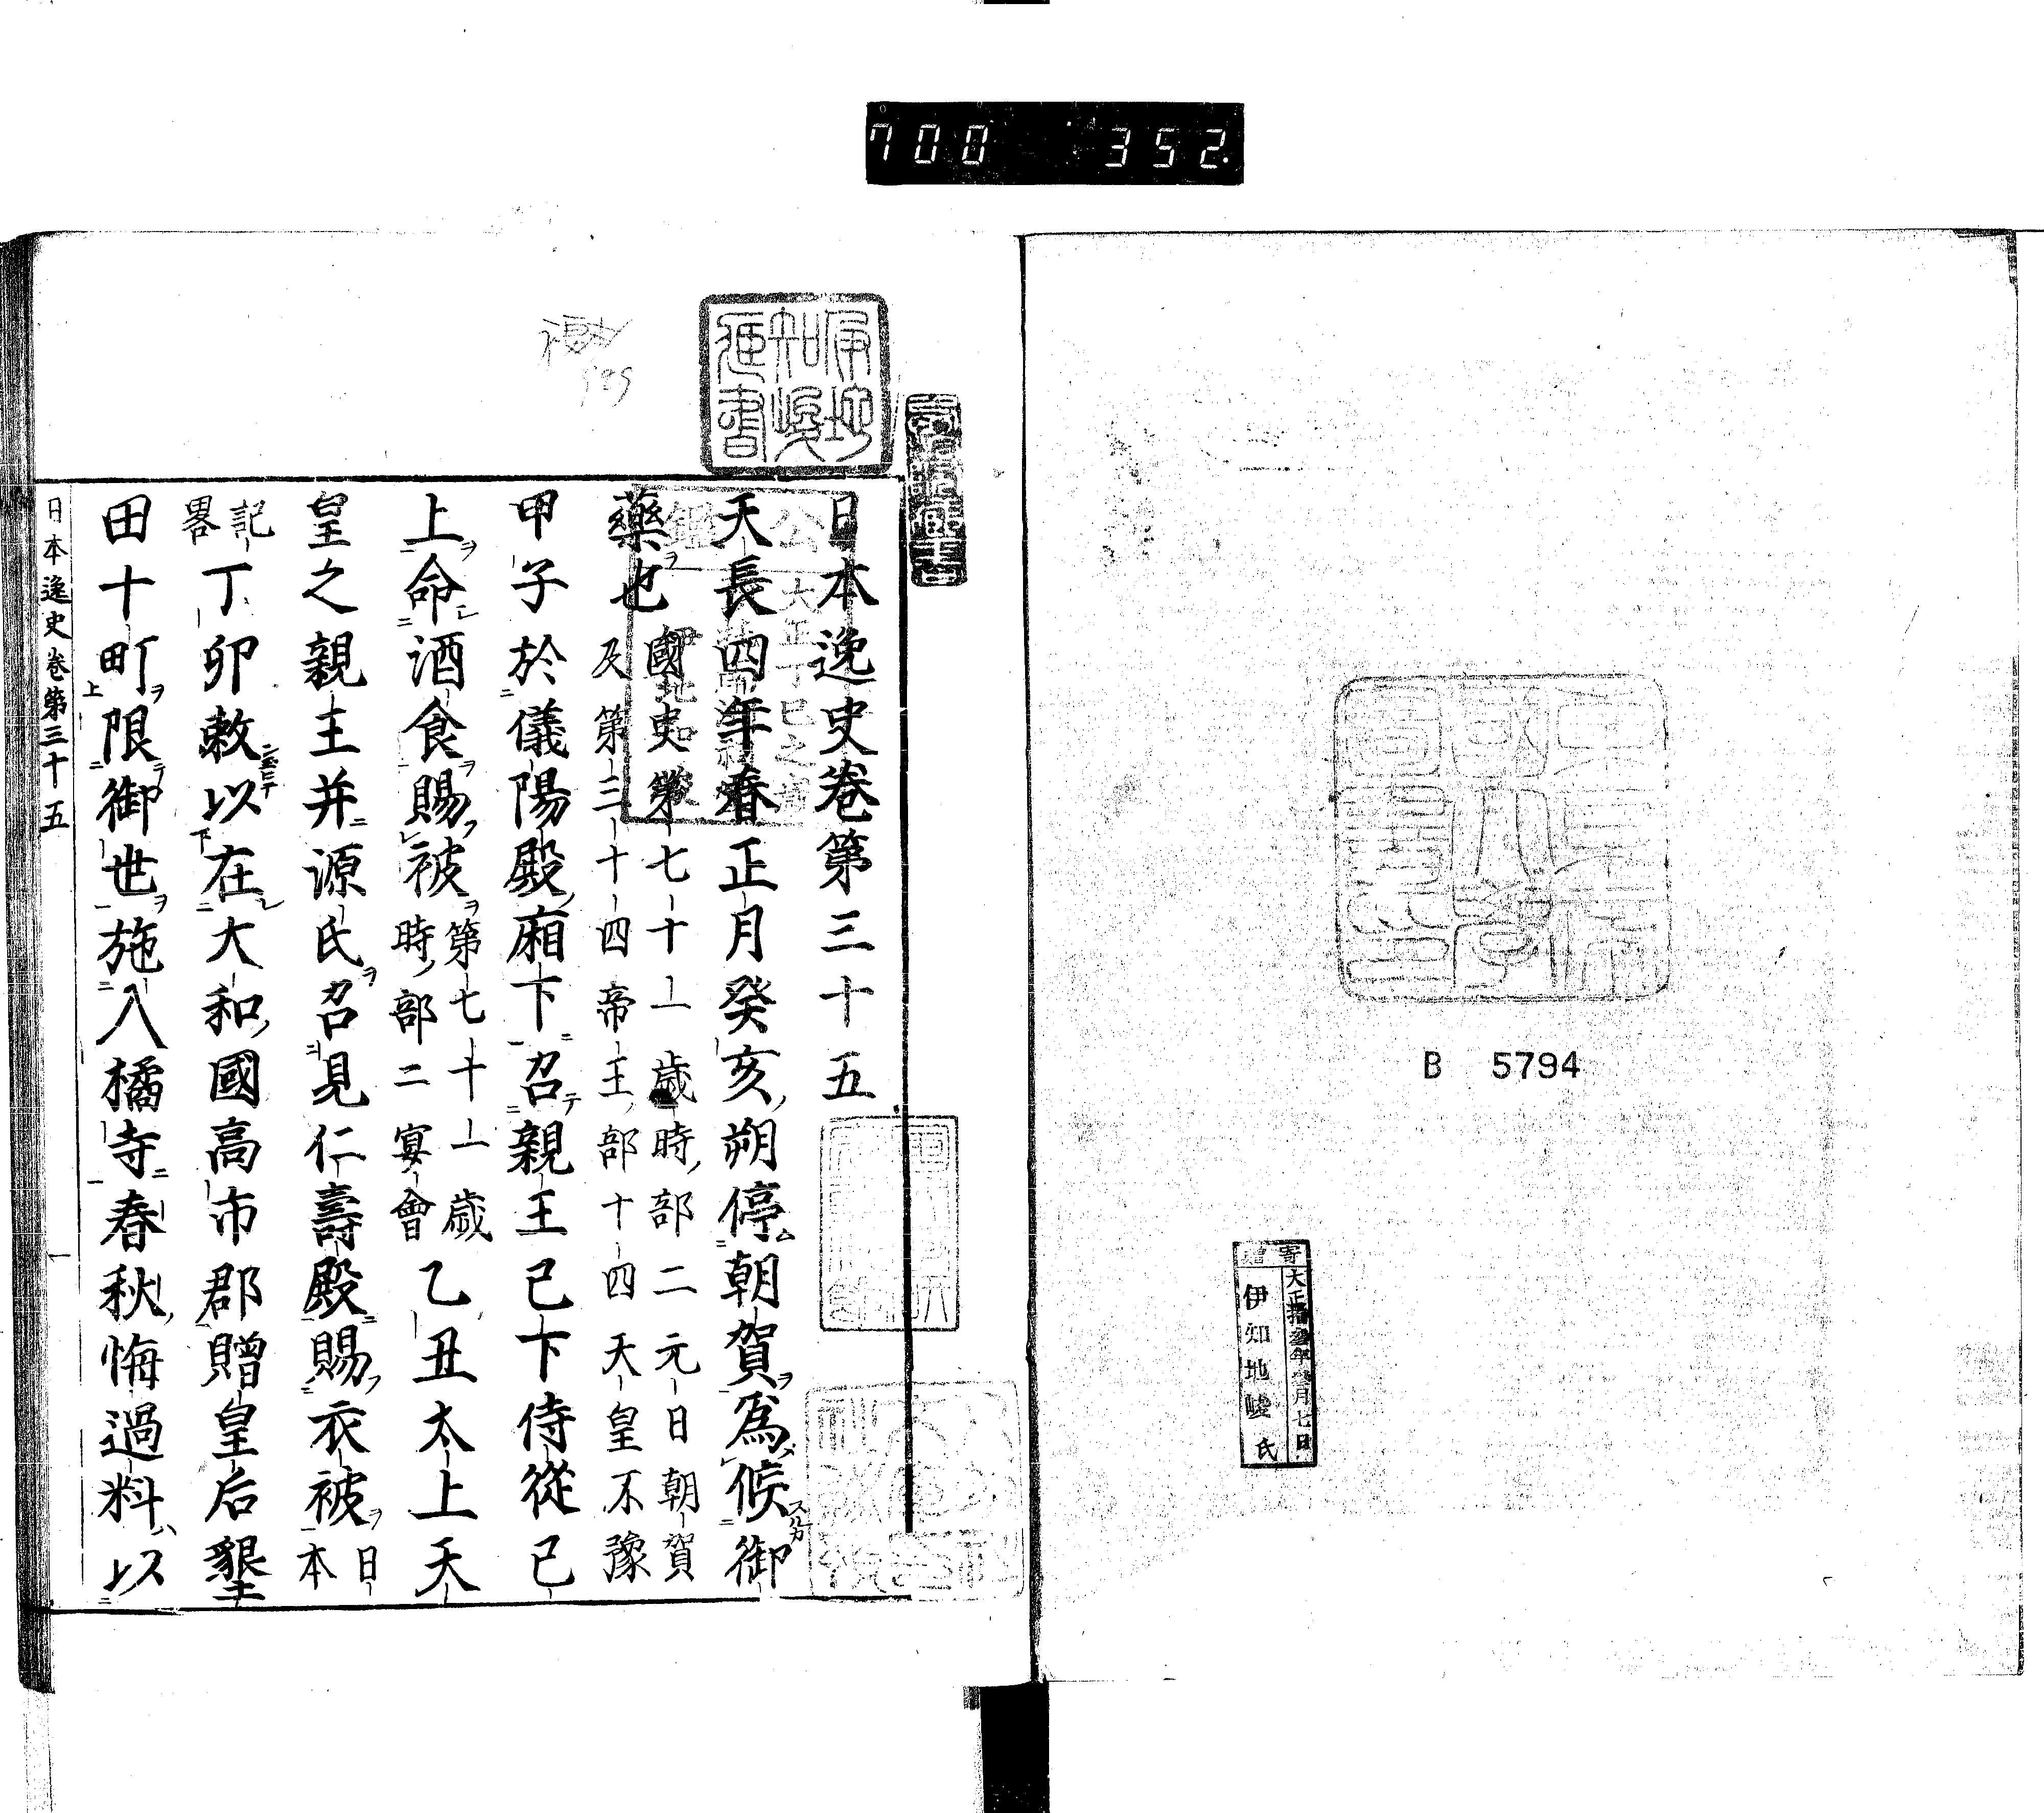 700 352.
B 5794
寄贈
大正拾参年参月七日
伊知地峻氏
日本逸史卷第三十五
天長四年春正月癸亥朔停朝賀爲候御
藥也國史第七十一歲時部二元日朝賀
及第三十四帝王部十四天皇不豫
甲子於儀陽殿廂下召親王已下侍從已
上命酒食賜被第七十一歲
時部二宴會乙丑太上天
皇之親王并源氏召見仁壽殿賜衣被日本
記畧丁卯敕以在大和國高市郡贈皇后墾
田十町限御世施入橘寺春秋悔過料以
日本逸史卷第三十五
一